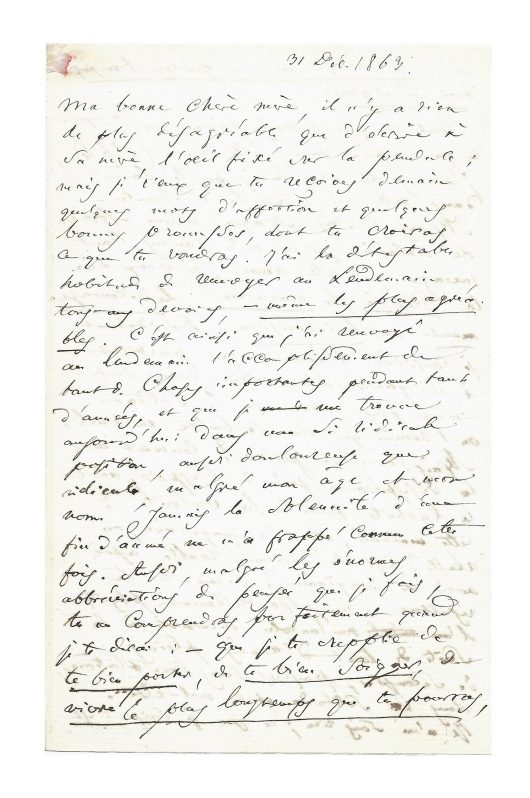 31 Déc. 1863.
Ma bonne chère mère, il n'y a rien
de plus désagréable que d'écrire à
sa mère l'œil fixé sur la pendule ;
mais je veux que tu reçoives demain
quelques mots d'affection et quelques
bonnes promesses, dont tu croiras
ce que tu voudras. J'ai la détestable
habitude de renvoyer au lendemain
tous mes devoirs, – même les plus agréa-
bles. C'est ainsi que j'ai renvoyé
au lendemain l'accomplissement de
tant de choses importantes pendant tant
d'années, et que je me trouve
aujourd'hui dans une si ridicule
position, aussi douloureuse que
ridicule, malgré mon âge et mon
nom. Jamais la solennité d'une
fin d'année ne m'a frappé comme cette
fois. Aussi, malgré les énormes
abbréviations de pensée que je fais,
tu me comprendras parfaitement quand
je te dirai : – que je te supplie de
te bien porter, de te bien soigner, de
vivre le plus longtemps que tu pourras,